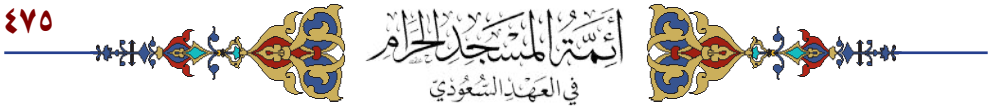 ٤٧٥
أَئِمَّةُ المَسْجِدِ الحَرَامِ
فِي العَهْدِ السُّعُودِيّ